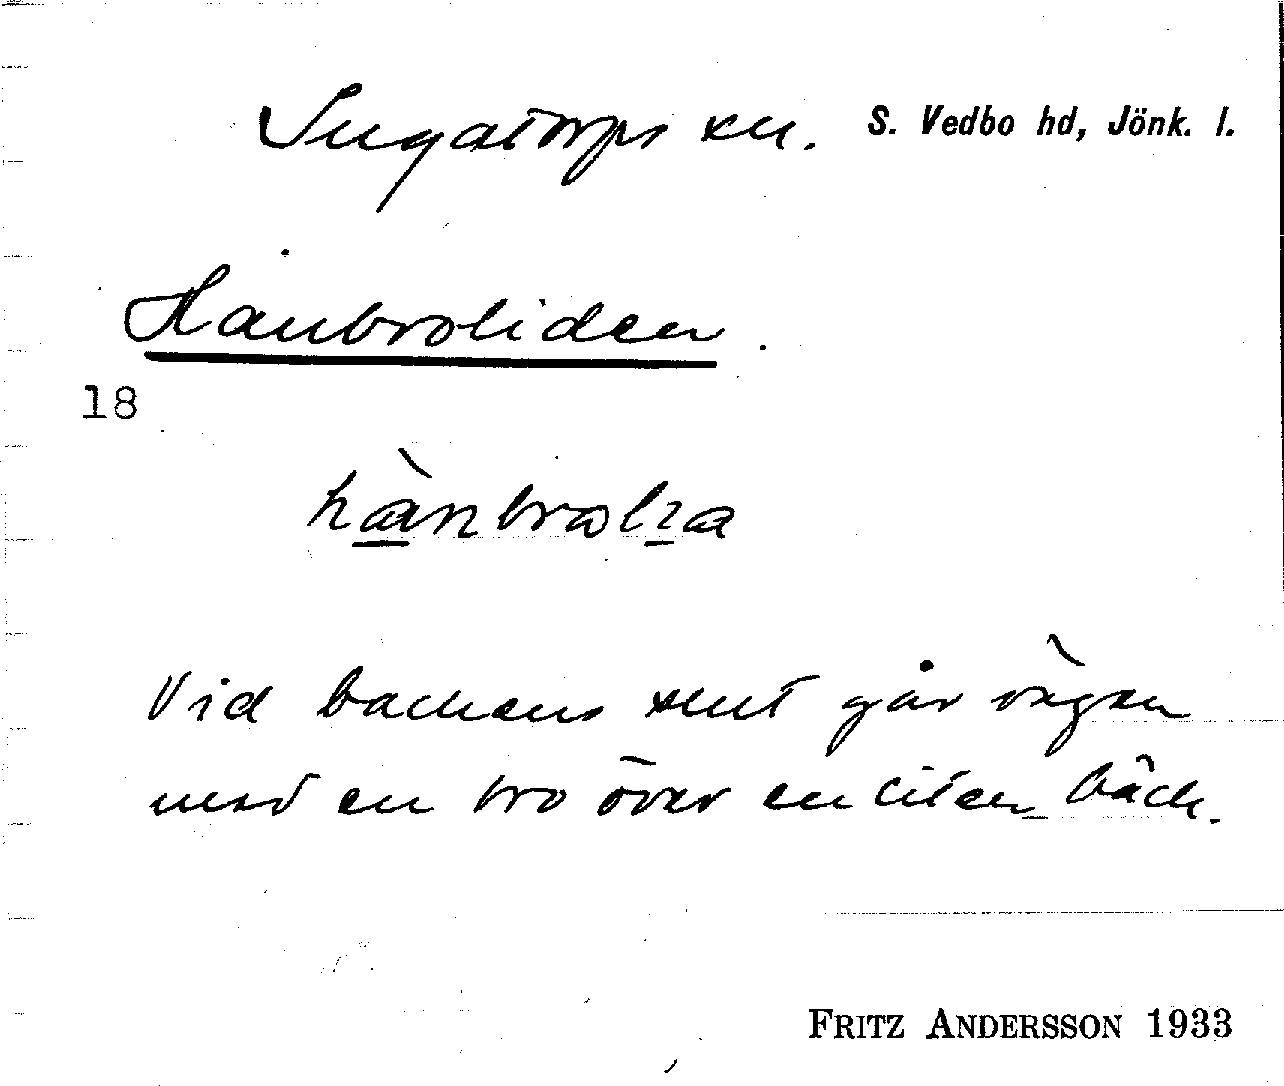 Ingatorps sn. S. Vedbo hd, Jönk. l.
Hanbroliden.
18
hànbrolia
Vid backens slut går vägen
med en bro över en liten bäck.
FRITZ ANDERSSON 1933